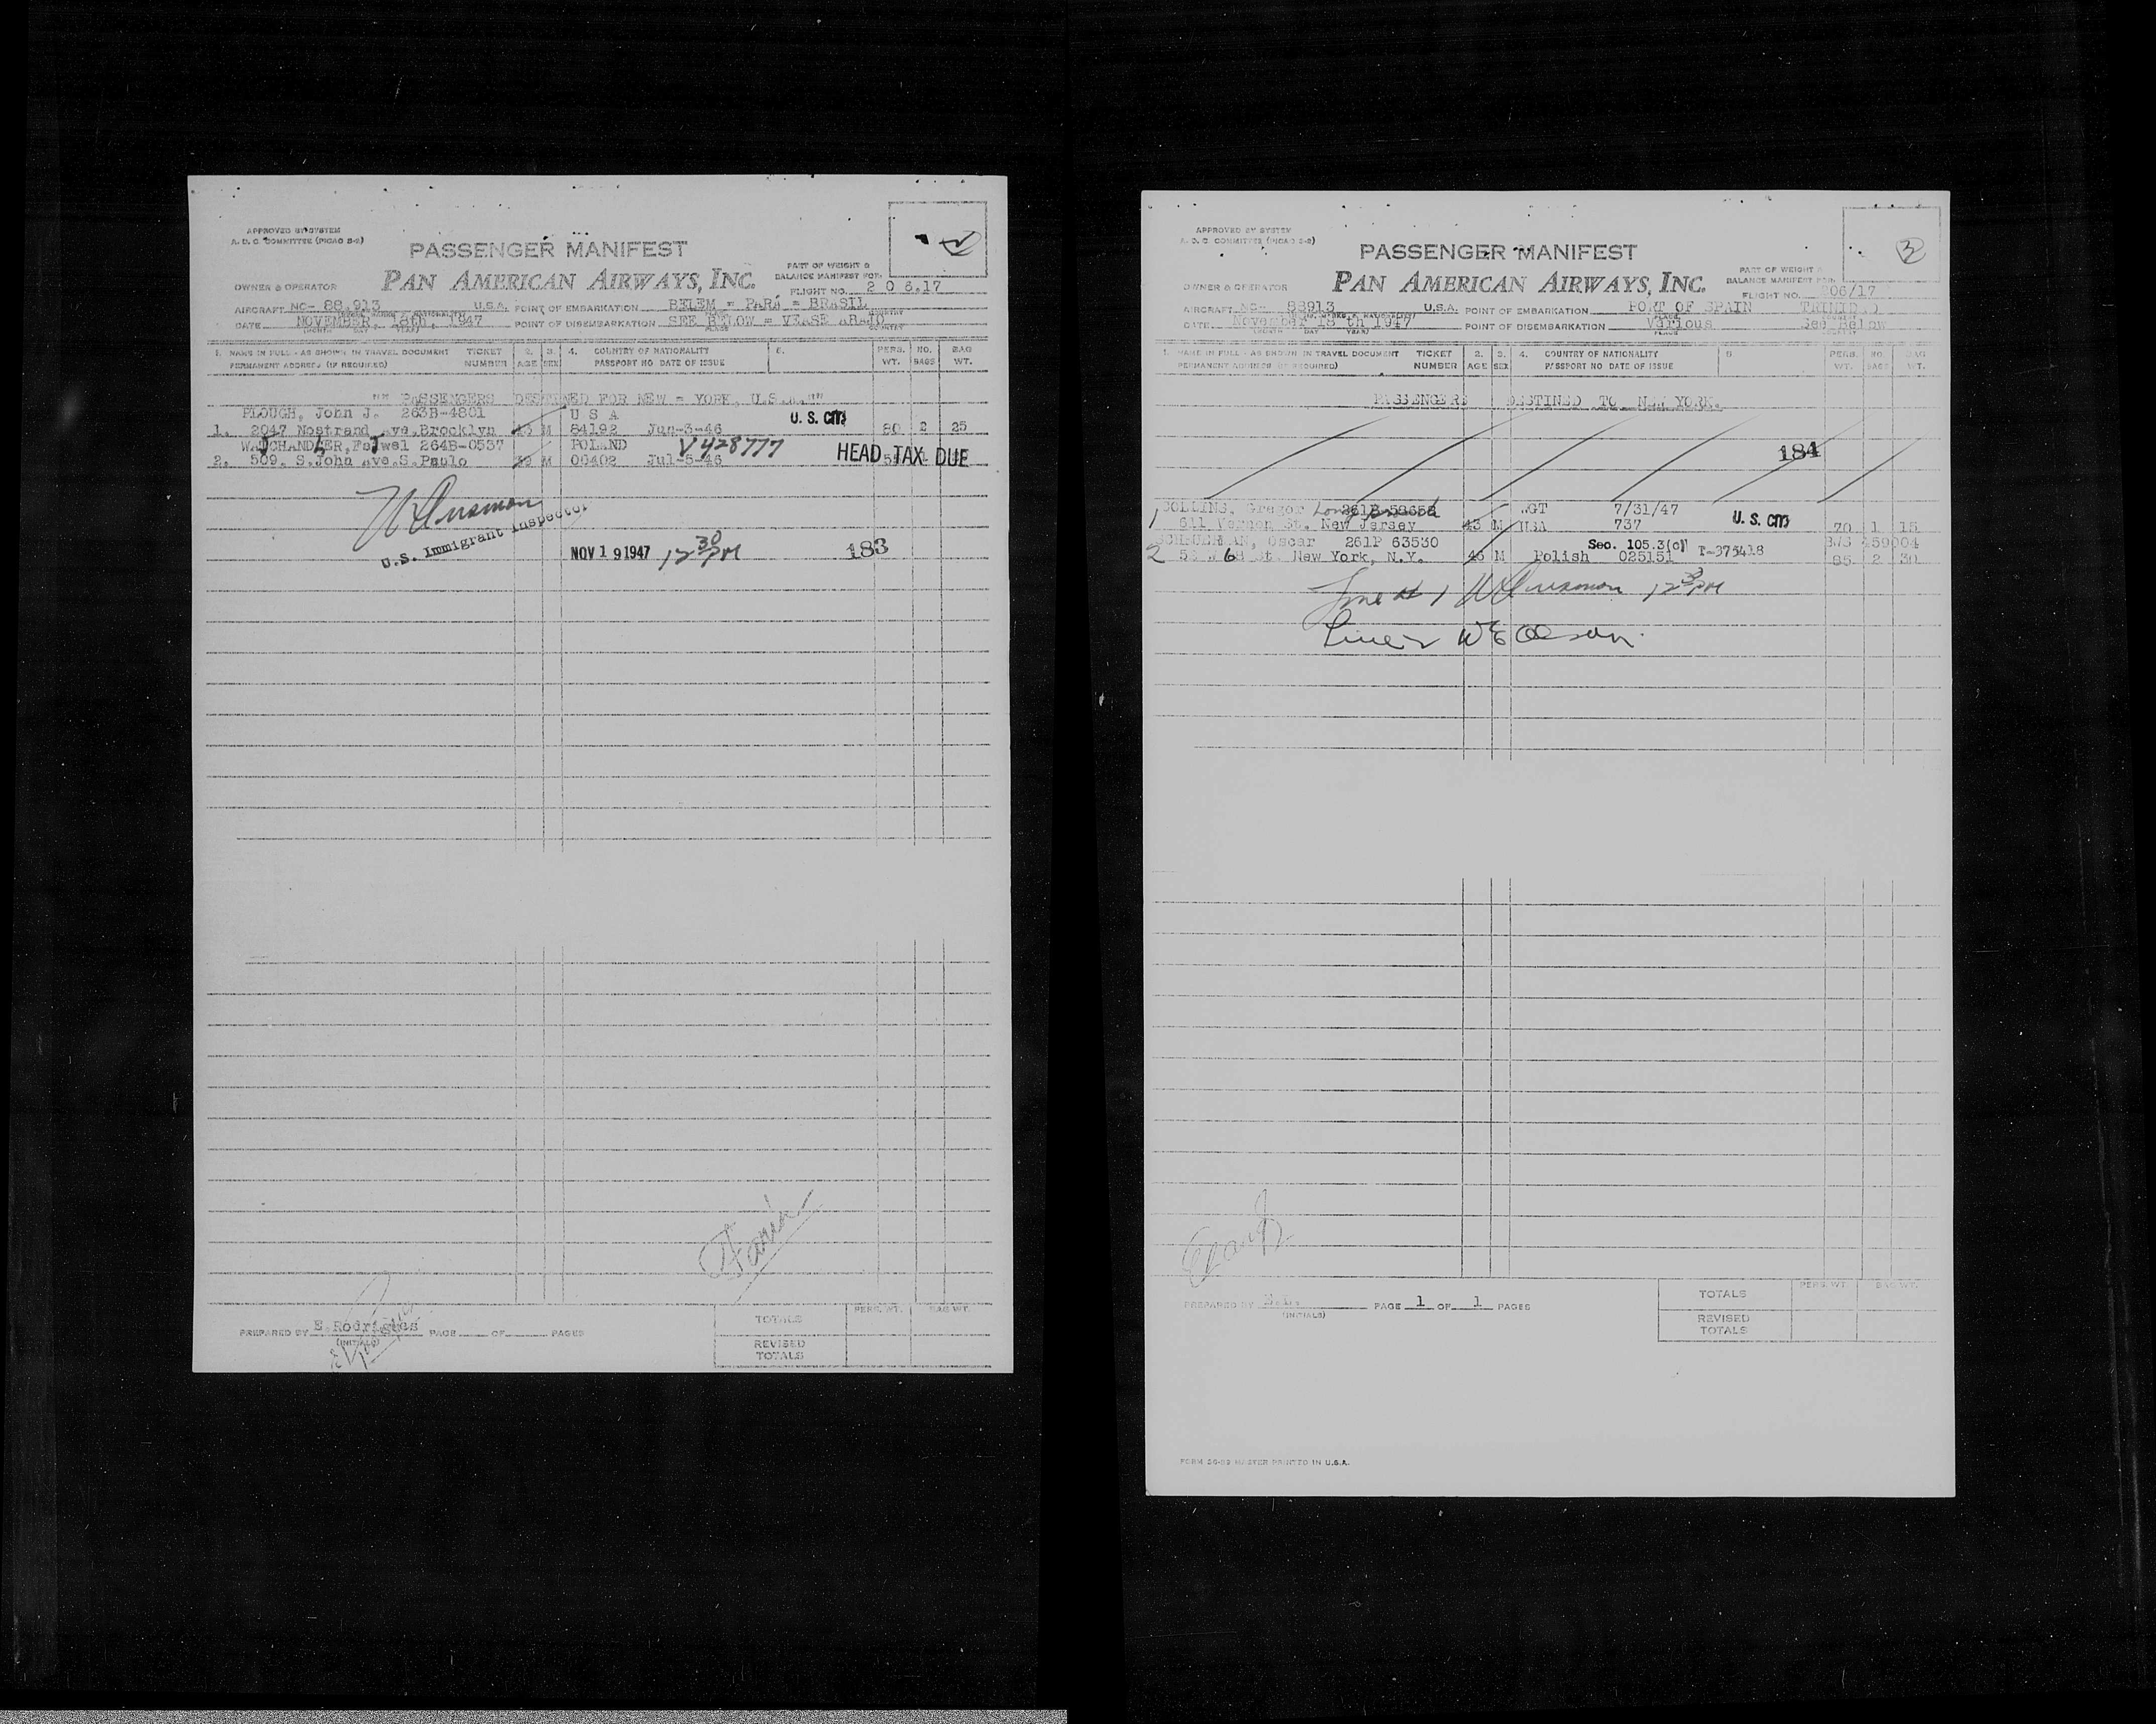 APPROVED BY SYSTEM
A. D. C. COMMITTEE (PICAO S-2)
PASSENGER MANIFEST
PAN AMERICAN AIRWAYS, INC.
PART OF WEIGHT &
BALANCE MANIFEST FOR
OWNER & OPERATOR
FLIGHT NO. 2 0 6.17
AIRCRAFT NC- 88.913 U.S.A. POINT OF EMBARKATION BELEM = PARÁ = BRASIL
DATE NOVEMBER, 18th, 1947 POINT OF DISEMBARKATION SEE BELOW = VEASE ABAJO
1. NAME IN FULL - AS SHOWN IN TRAVEL DOCUMENT TICKET 2. 3. 4. COUNTRY OF NATIONALITY PERS. NO. BAG
PERMANENT ADDRESS (IF REQUIRED) NUMBER AGE SEX PASSPORT NO DATE OF ISSUE WT. BAGS WT.
"" PASSENGERS DESTINED FOR NEW = YORK, U.S.A.""
PLOUGH, John J. 263B-4801 U S A U.S. Cm
1. 2047 Nostrand Ave.Brocklyn M 84192 Jun-3-46 80 2 25
264B-0537 POLAND V428777
2. 509. S.John Ave.S.Paulo M 00402 Jul-5-46 HEAD TAX DUE
U.S. Immigrant Inspector
NOV 19 1947 12 30 PM 183
PREPARED BY E.Rodrigues PAGE OF PAGES
(INITIALS)
PERS. WT. BAG WT.
TOTALS
REVISED
TOTALS
APPROVED BY SYSTEM
A. D. C. COMMITTEE (PICAO S-2)
3
PASSENGER MANIFEST
PAN AMERICAN AIRWAYS, INC.
PART OF WEIGHT &
BALANCE MANIFEST FOR
OWNER & OPERATOR
FLIGHT NO. 206/17
AIRCRAFT NC- 88913 U.S.A. POINT OF EMBARKATION PORT OF SPAIN TRINIDAD
DATE November 18 th 1947 POINT OF DISEMBARKATION Various See Below
1. NAME IN FULL - AS SHOWN IN TRAVEL DOCUMENT TICKET 2. 3. 4. COUNTRY OF NATIONALITY PERS. NO. BAG
PERMANENT ADDRESS (IF REQUIRED) NUMBER AGE SEX PASSPORT NO DATE OF ISSUE WT. BAGS WT.
PASSENGERS DESTINED TO NEW YORK.
184
COLLINS, Gregor 7/31/47
1 641 Vernon St. New Jersey 43 M USA 737 U.S. Cm 70 1 15
SCHNUERMAN, Oscar 261P 63530 Sec. 105.3(c) BWS 459004
2 St. New York, N.Y. 45 M Polish 025151 T-375418 85 2 30
Line # 1 12 30 PM
Line 2 W E Olson
PREPARED BY PAGE 1 OF 1 PAGES
(INITIALS)
PERS. WT. BAG WT.
TOTALS
REVISED
TOTALS
FORM 20-82 MASTER PRINTED IN U.S.A.